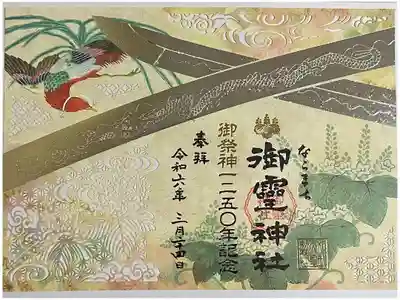 ならまち
御霊神社
御祭神一二五〇年記念
奉拝
令和六年 三月二十四日